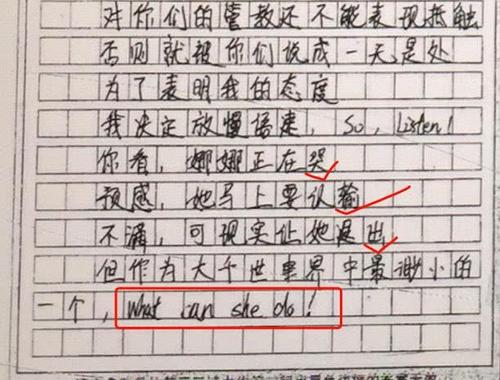 对你们的管教还不能表现抵触
否则就被你们说成一天是处
为了表明我的态度
我决定放慢语速，So，Listen！
你看，娜娜正在哭
预感，她马上要认输
不涌，可现实让她退出
但作为大千世界中最渺小的
一个，What can she do！